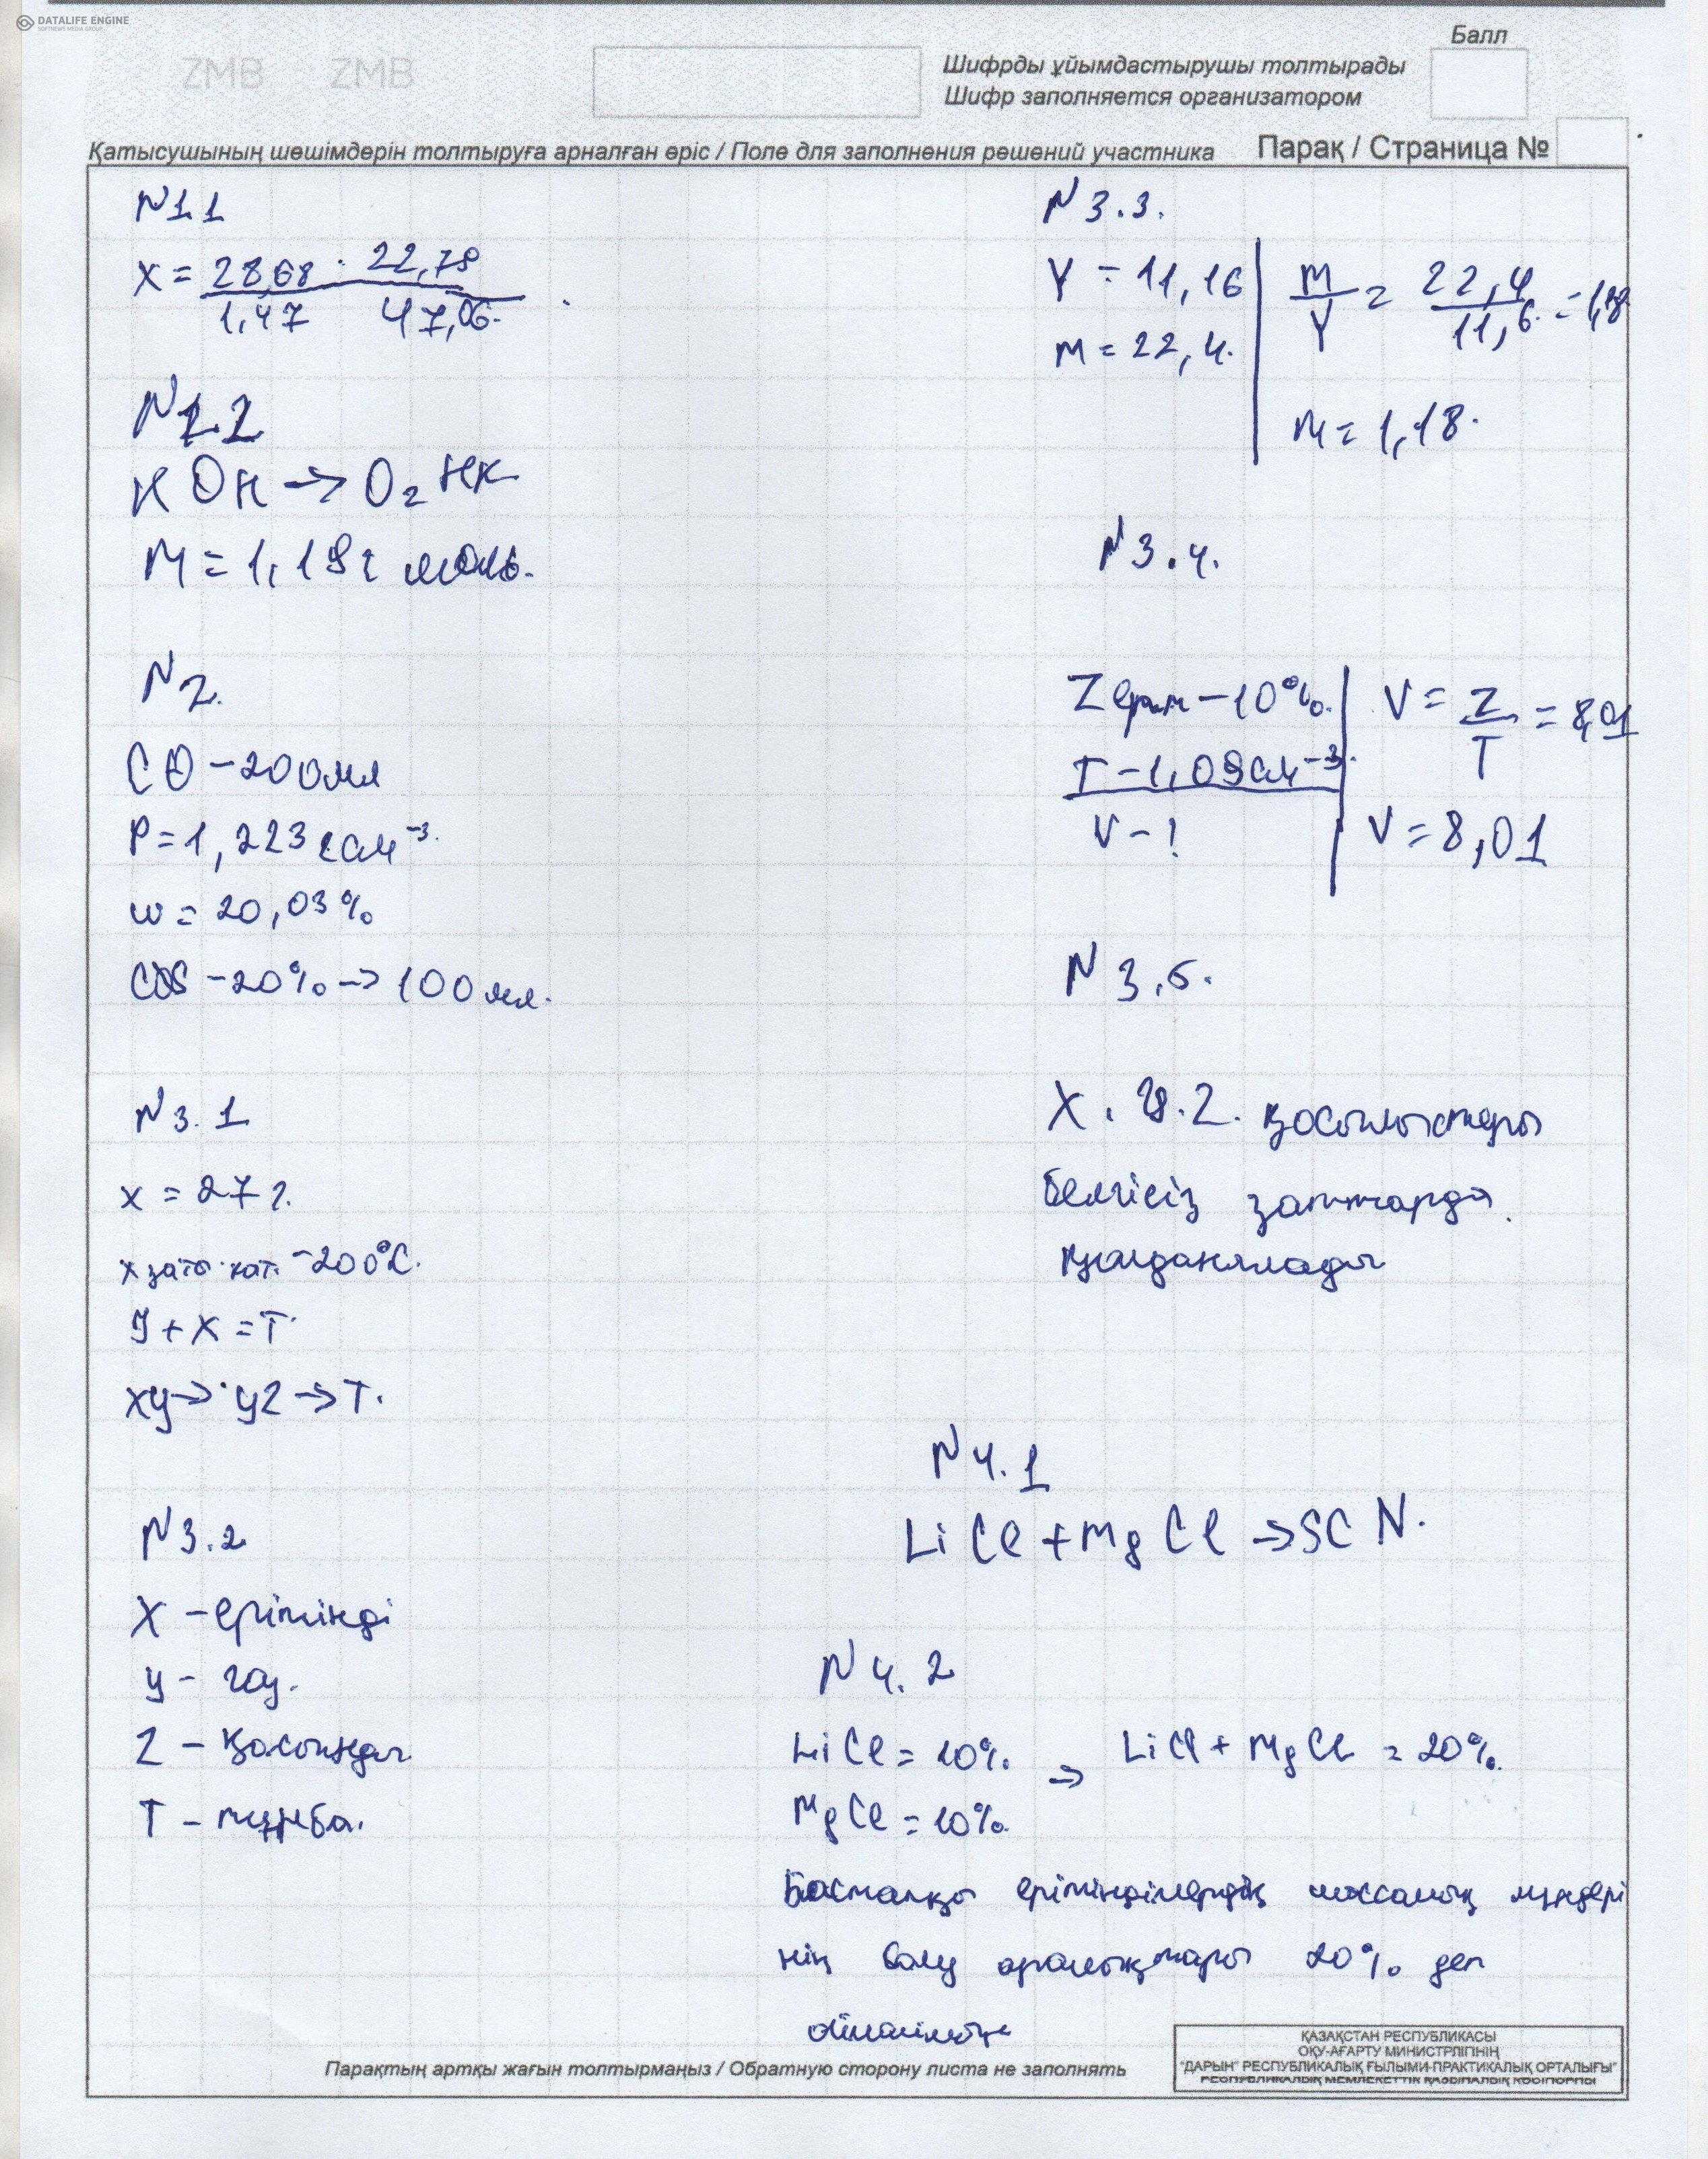 DATALIFE ENGINE
SOFTNEWS MEDIA GROUP
ZMB ZMB
Балл
Шифрды ұйымдастырушы толтырады
Шифр заполняется организатором
Қатысушының шешімдерін толтыруға арналған өріс / Поле для заполнения решений участника
Парақ / Страница №
N1.1
X = 28,68 · 22,78
1,47 47,06.
N1.2
KOH → O₂ HK
M = 1,18г моль.
N2.
CO - 200мл
P = 1, 223 г см⁻³.
w = 20,03%
COS - 20% → 100 мл.
N3.1
x = 27 г.
x заты қат. -200°C.
y + x = T
xy → yz → T.
N3.2
X - ерітінді
y - газ.
Z - қосынды
T - тұнба.
N 3.3.
Y = 11,16
m = 22,4.
m/Y = 22,4/11,6 = 1,18
M = 1,18.
N3.4.
Z ерт - 10%.
T - 1,09 см⁻³.
V - !
V = Z/T = 8,01
V = 8,01
N 3.5.
X. Y. Z. қосылыстары
белгісіз заттарда
қолданылады
N4.1
LiCl + MgCl → SCN.
N4.2
LiCl = 10%
MgCl = 10%
→ LiCl + MgCl = 20%.
Бастапқы ерітінділердің массалық үлестері
нің болу аралықтары 20% деп
ойлаймын
Парақтың артқы жағын толтырмаңыз / Обратную сторону листа не заполнять
ҚАЗАҚСТАН РЕСПУБЛИКАСЫ
ОҚУ-АҒАРТУ МИНИСТРЛІГІНІҢ
"ДАРЫН" РЕСПУБЛИКАЛЫҚ ҒЫЛЫМИ-ПРАКТИКАЛЫҚ ОРТАЛЫҒЫ"
РЕСПУБЛИКАЛЫҚ МЕМЛЕКЕТТІК ҚАЗЫНАЛЫҚ КӘСІПОРНЫ